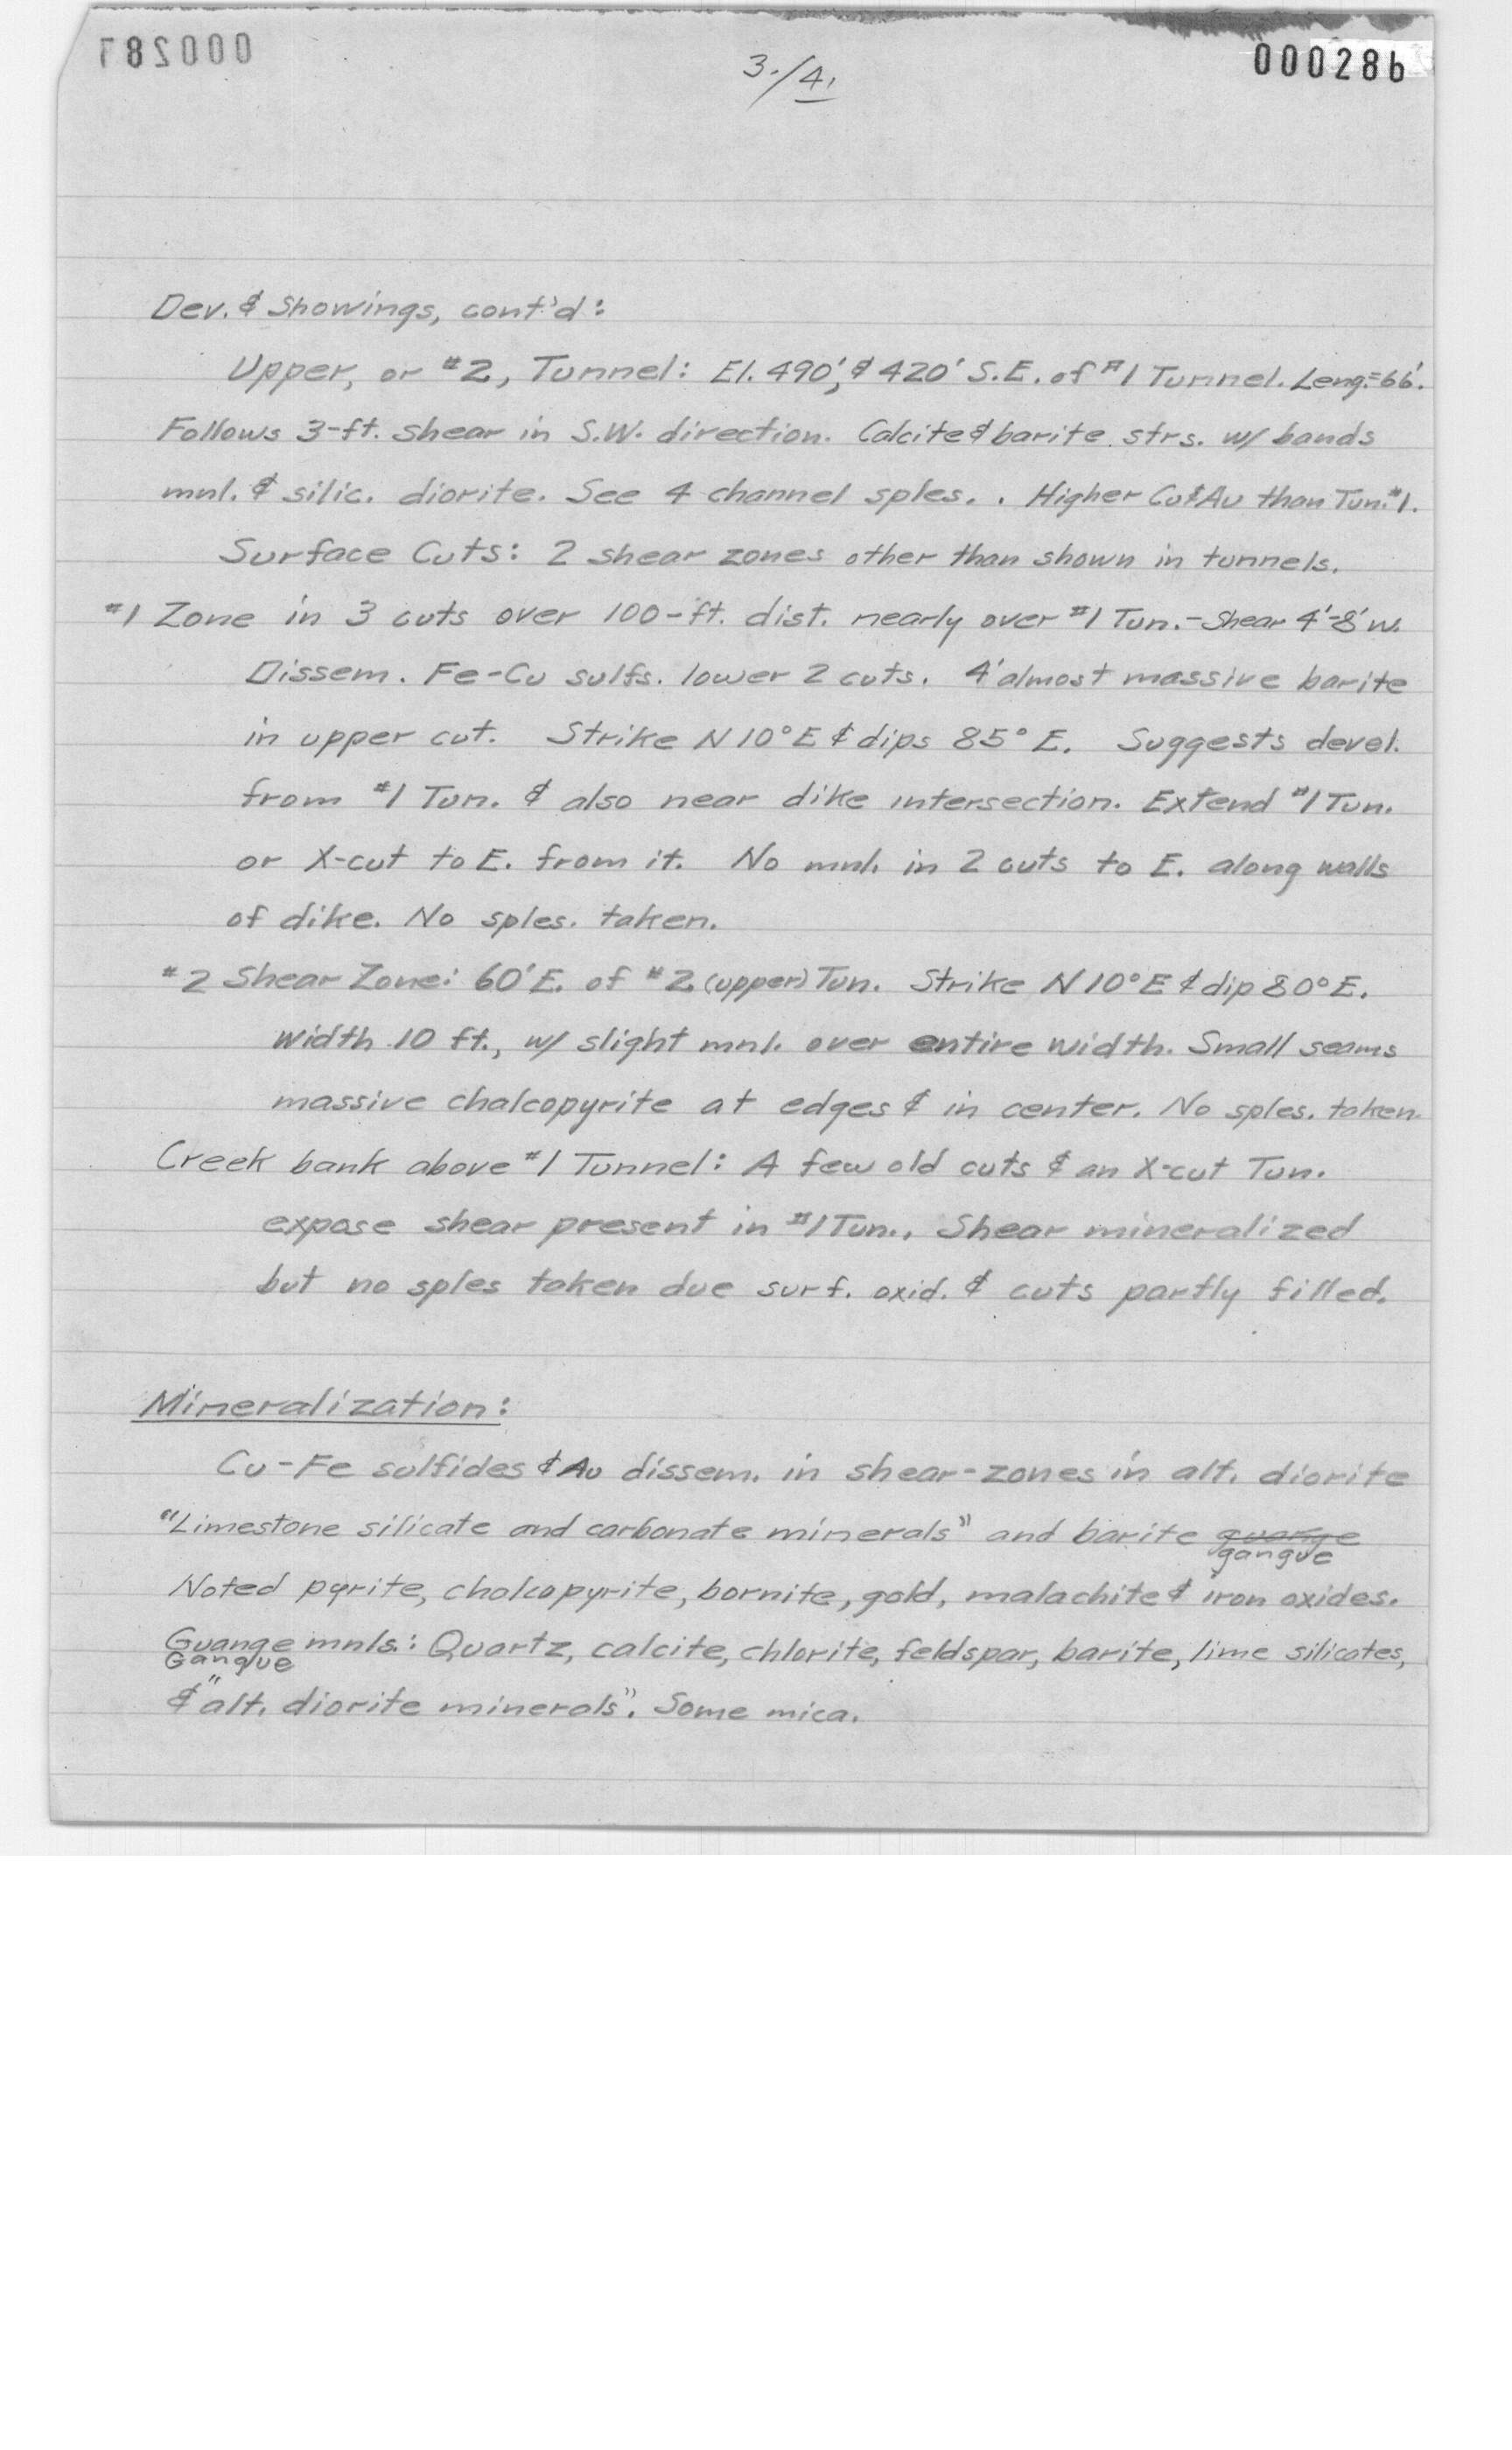 000286
3./4.
Dev. & Showings, cont'd:
Upper, or #2, Tunnel: El. 490', & 420' S.E. of #1 Tunnel. Leng.=66'.
Follows 3-ft. shear in S.W. direction. Calcite & barite strs. w/ bands
mnl. & silic. diorite. See 4 channel sples. . Higher Cu & Au than Tun. #1.
Surface Cuts: 2 shear zones other than shown in tunnels.
#1 Zone in 3 cuts over 100-ft. dist. nearly over #1 Tun.-Shear 4'-8' w.
Dissem. Fe-Cu sulfs. lower 2 cuts. 4' almost massive barite
in upper cut. Strike N 10° E & dips 85° E. Suggests devel.
from #1 Tun. & also near dike intersection. Extend #1 Tun.
or X-cut to E. from it. No mnl. in 2 cuts to E. along walls
of dike. No sples. taken.
#2 Shear Zone: 60' E. of #2 (upper) Tun. Strike N 10° E & dip 80° E.
Width 10 ft., w/ slight mnl. over entire width. Small seams
massive chalcopyrite at edges & in center. No sples. taken.
Creek bank above #1 Tunnel: A few old cuts & an X-cut Tun.
expose shear present in #1 Tun., Shear mineralized
but no sples taken due surf. oxid. & cuts partly filled.
Mineralization:
Cu-Fe sulfides & Au dissem. in shear-zones in alt. diorite
"Limestone silicate and carbonate minerals" and barite guange
gangue
Noted pyrite, chalcopyrite, bornite, gold, malachite & iron oxides.
Guange mnls.: Quartz, calcite, chlorite, feldspar, barite, lime silicates,
Gangue
& "alt. diorite minerals". Some mica.